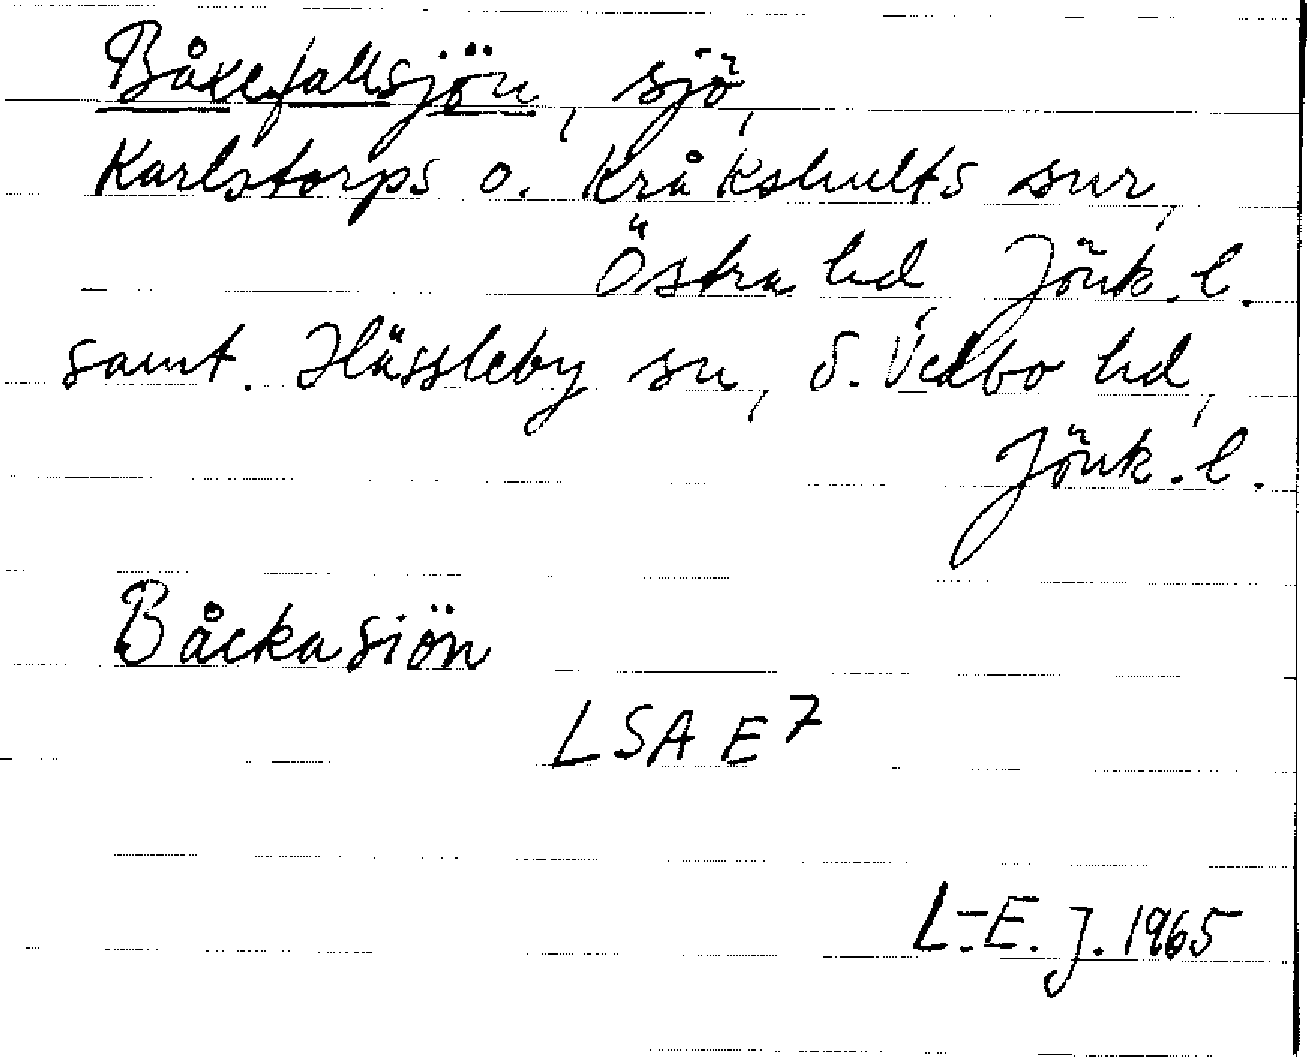 Båxefallsjön, sjö,
Karlstorps o. Kråkshults snr,
Östra hd, Jönk. l.
samt. Hässleby sn, S. Vedbo hd,
Jönk. l.
Båckasiön
LSA E7
L.-E. J. 1965